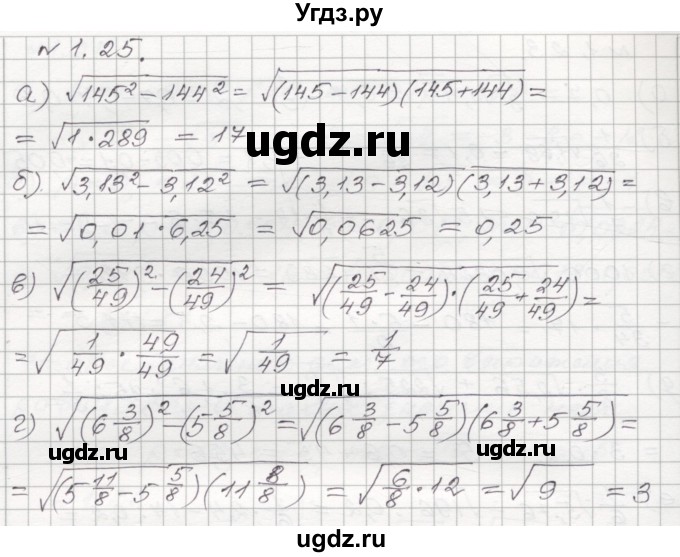 Угдз.ру
N 1.25.
а) √(145² − 144²) = √((145−144)(145+144)) =
= √(1·289) = 17
ugdz.ru
б) √(3,13² − 3,12²) = √((3,13−3,12)(3,13+3,12)) =
= √(0,01·6,25) = √0,0625 = 0,25
в) √((25/49)² − (24/49)²) = √((25/49 − 24/49)·(25/49 + 24/49)) =
= √(1/49 · 49/49) = √(1/49) = 1/7
ugdz.ru
г) √((6 3/8)² − (5 5/8)²) = √((6 3/8 − 5 5/8)(6 3/8 + 5 5/8)) =
ugdz.ru ugdz.ru
= √((5 11/8 − 5 5/8)(11 8/8)) = √(6/8 · 12) = √9 = 3
ugdz.ru